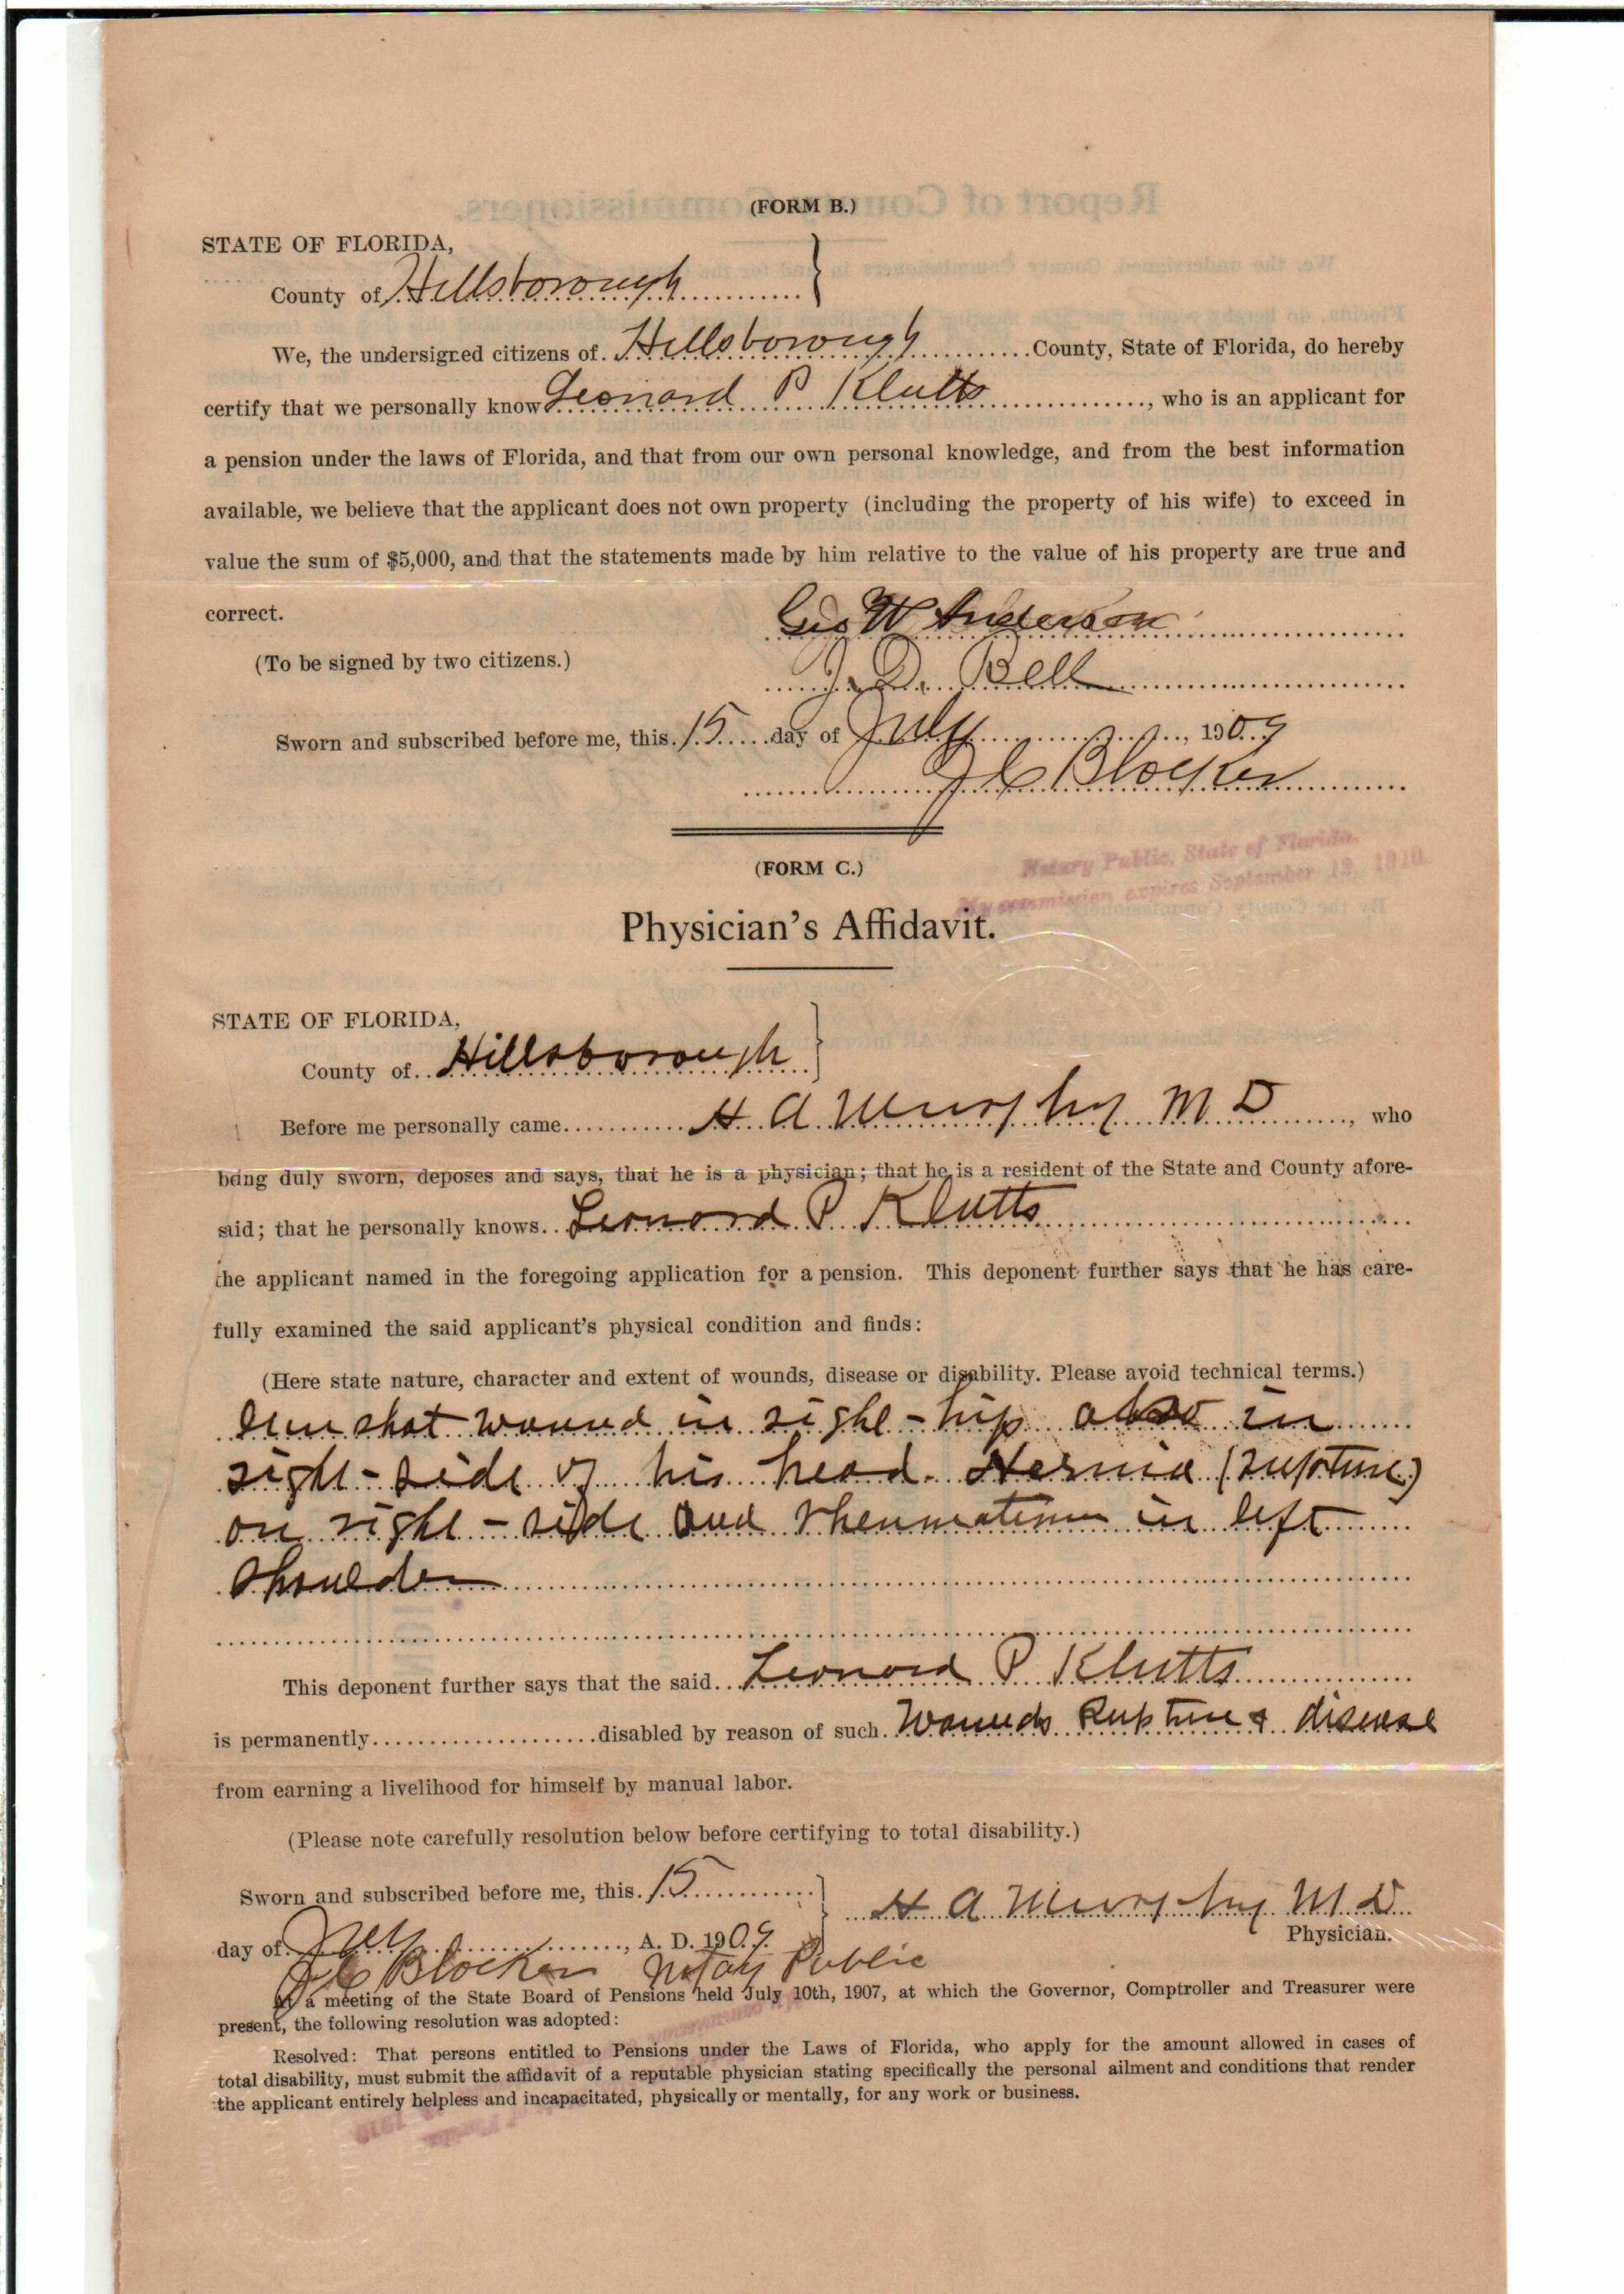 (FORM B.)
STATE OF FLORIDA,
County of Hillsborough
We, the undersigned citizens of Hillsborough County, State of Florida, do hereby
certify that we personally know Leonard P Klutts, who is an applicant for
a pension under the laws of Florida, and that from our own personal knowledge, and from the best information
available, we believe that the applicant does not own property (including the property of his wife) to exceed in
value the sum of $5,000, and that the statements made by him relative to the value of his property are true and
correct.
Geo W Anderson
(To be signed by two citizens.)
J. D. Bell
Sworn and subscribed before me, this 15 day of July, 1909
J C Blocker
(FORM C.)
Notary Public, State of Florida.
My commission expires September 12, 1910.
Physician's Affidavit.
STATE OF FLORIDA,
County of Hillsborough
Before me personally came H A Murphy M D, who
being duly sworn, deposes and says, that he is a physician; that he is a resident of the State and County afore-
said; that he personally knows Leonard P Klutts
the applicant named in the foregoing application for a pension. This deponent further says that he has care-
fully examined the said applicant's physical condition and finds:
(Here state nature, character and extent of wounds, disease or disability. Please avoid technical terms.)
Gun shot wound in right-hip also in
right-side of his head. Hernia (rupture)
on right-side and rheumatism in left
shoulder
This deponent further says that the said Leonard P Klutts
is permanently disabled by reason of such Wounds Rupture & disease
from earning a livelihood for himself by manual labor.
(Please note carefully resolution below before certifying to total disability.)
Sworn and subscribed before me, this 15
H A Murphy M D
Physician.
day of July, A. D. 1909
J C Blocker Notary Public
At a meeting of the State Board of Pensions held July 10th, 1907, at which the Governor, Comptroller and Treasurer were
present, the following resolution was adopted:
Resolved: That persons entitled to Pensions under the Laws of Florida, who apply for the amount allowed in cases of
total disability, must submit the affidavit of a reputable physician stating specifically the personal ailment and conditions that render
the applicant entirely helpless and incapacitated, physically or mentally, for any work or business.